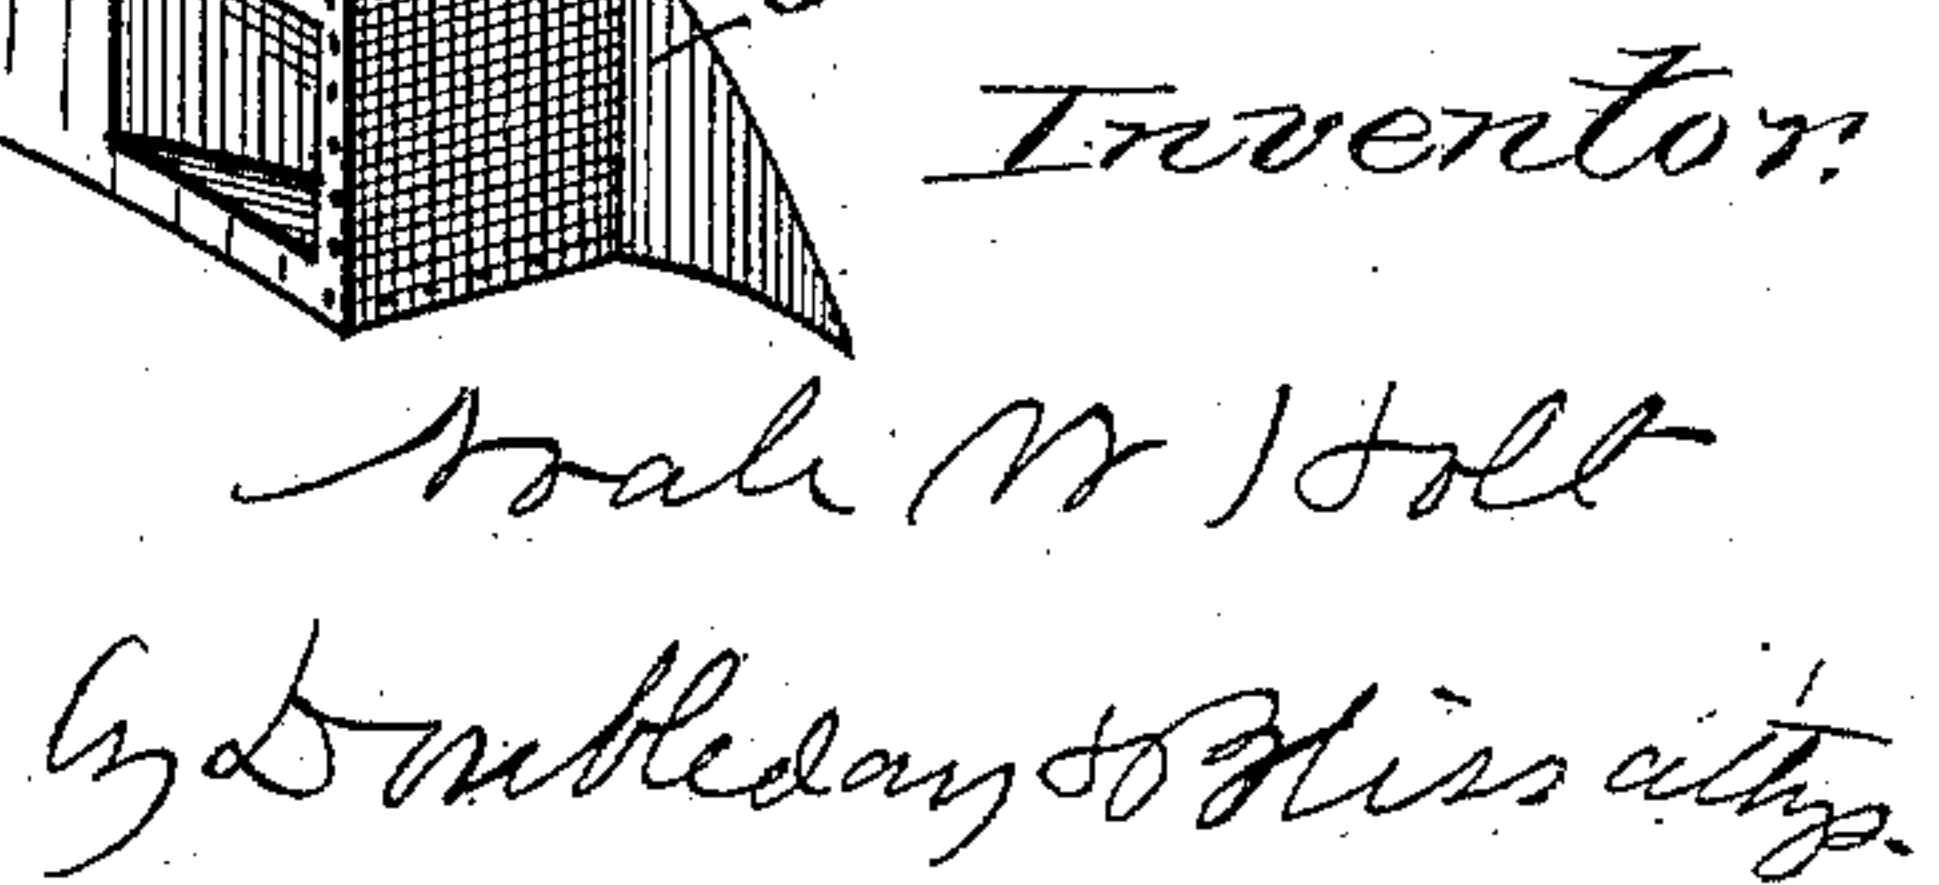 Inventor.
Noah W Holt
by Doubleday & Bliss attys.